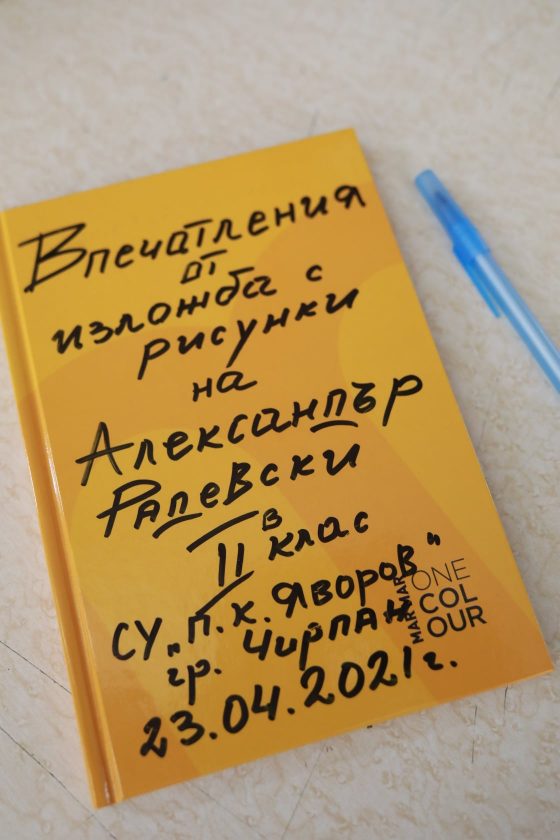 Впечатления
от
изложба с
рисунки
на
Александър
Радевски
II в клас
СУ „П. К. Яворов“
гр. Чирпан
23.04.2021 г.
MARMAR
ONE
COL
OUR